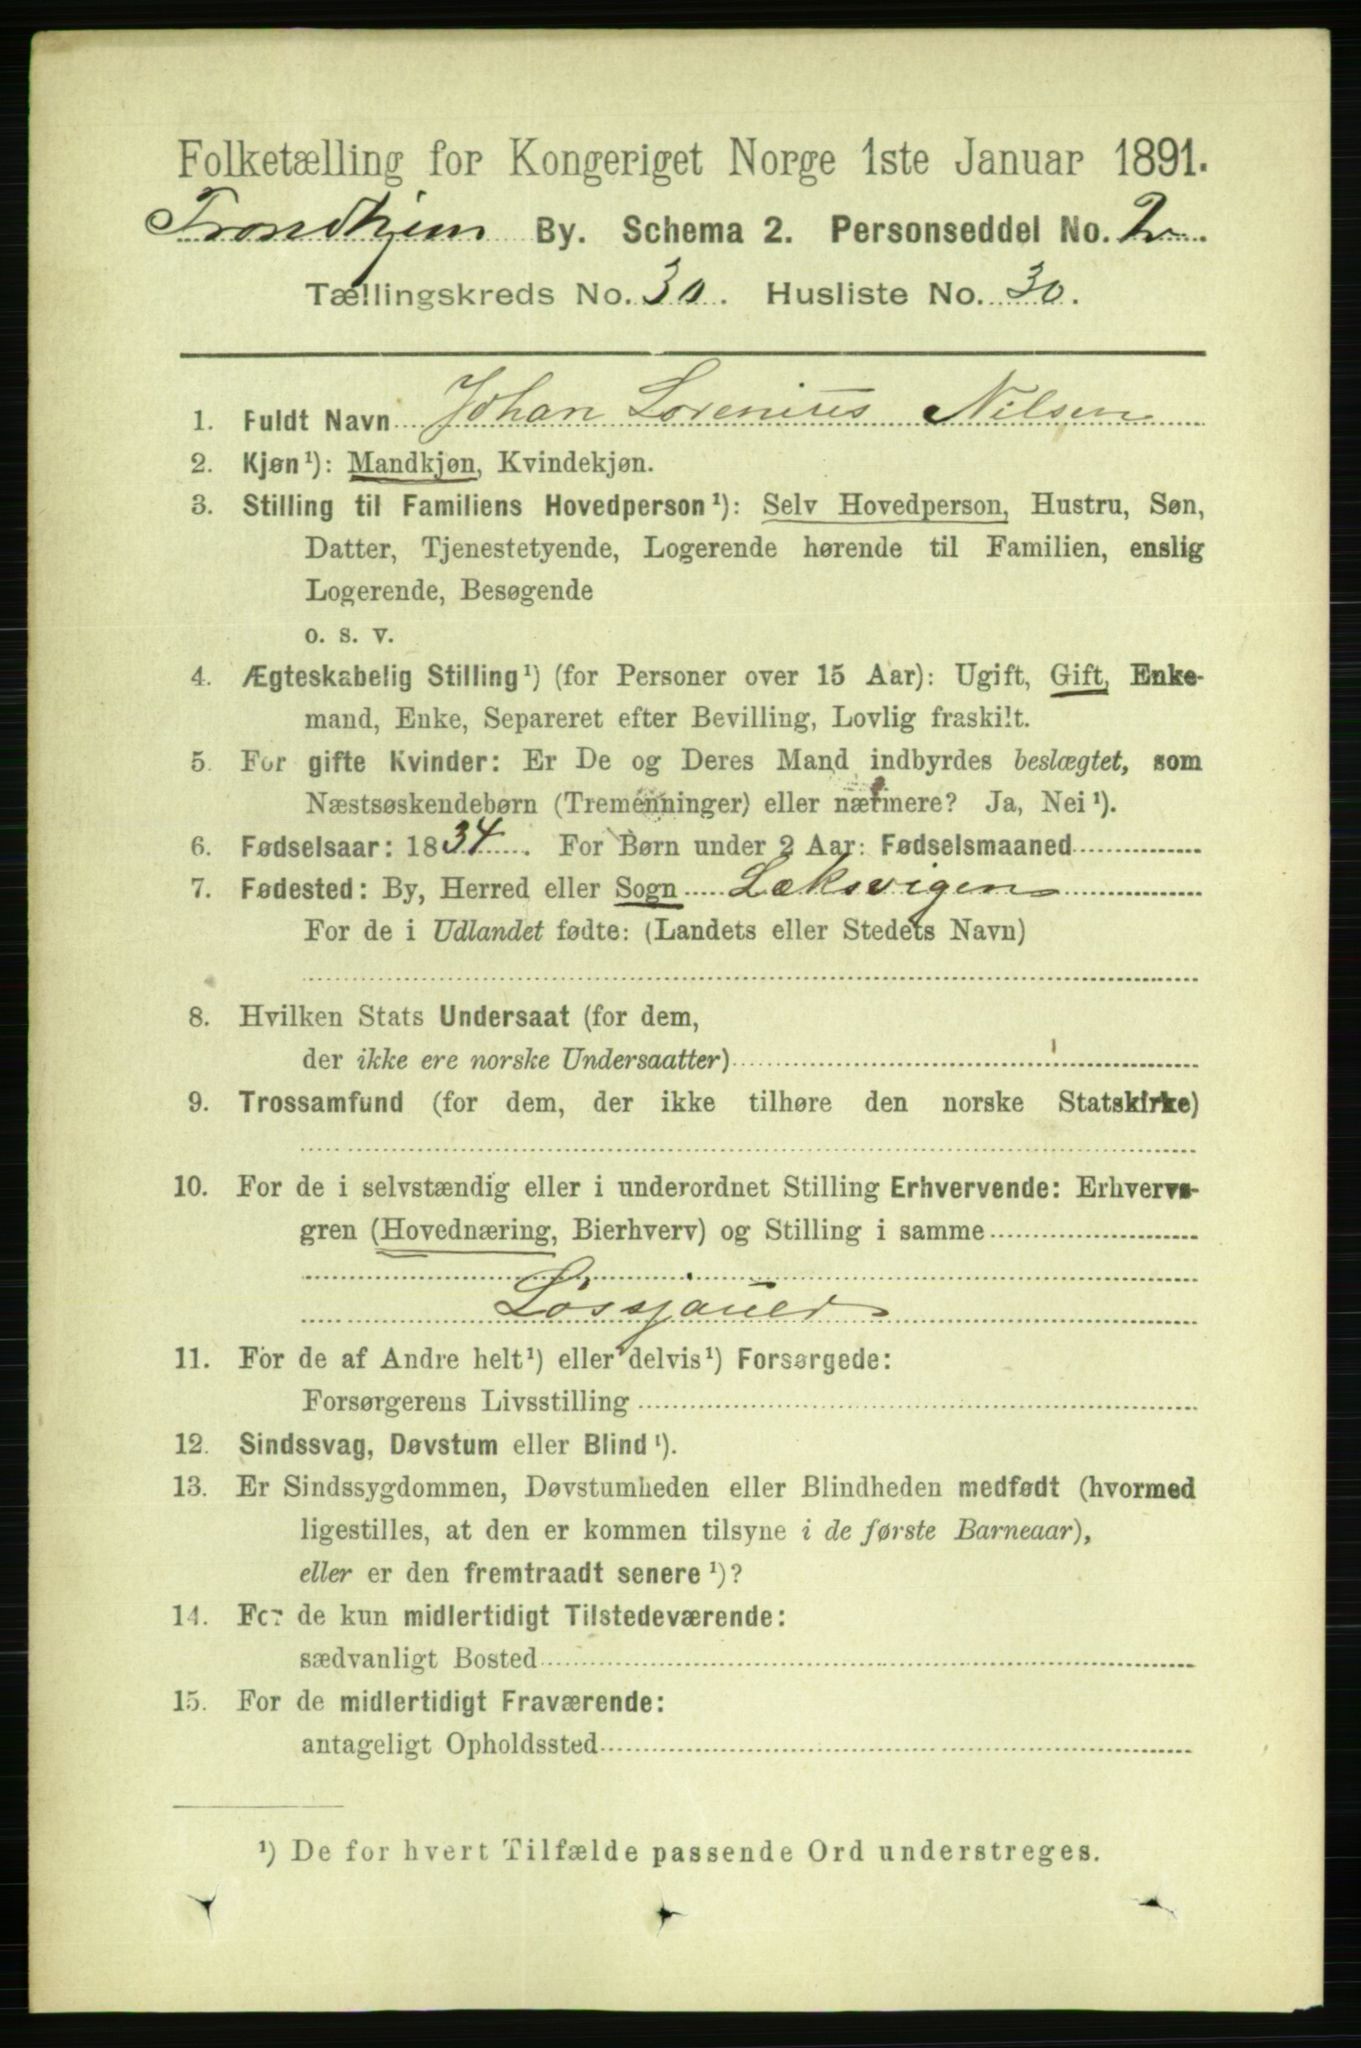 Folketælling for Kongeriget Norge 1ste Januar 1891.
Trondhjem By. Schema 2. Personseddel No. 2
Tællingskreds No. 30. Husliste No. 30.
1. Fuldt Navn Johan Lorenius Nilsen
2. Kjøn¹): Mandkjøn, Kvindekjøn.
3. Stilling til Familiens Hovedperson¹): Selv Hovedperson, Hustru, Søn,
Datter, Tjenestetyende, Logerende hørende til Familien, enslig
Logerende, Besøgende
o. s. v.
4. Ægteskabelig Stilling¹) (for Personer over 15 Aar): Ugift, Gift, Enke-
mand, Enke, Separeret efter Bevilling, Lovlig fraskilt.
5. For gifte Kvinder: Er De og Deres Mand indbyrdes beslægtet, som
Næstsøskendebørn (Tremenninger) eller nærmere? Ja, Nei¹).
6. Fødselsaar: 1834. For Børn under 2 Aar: Fødselsmaaned
7. Fødested: By, Herred eller Sogn Læksvigen
For de i Udlandet fødte: (Landets eller Stedets Navn)
8. Hvilken Stats Undersaat (for dem,
der ikke ere norske Undersaatter)
9. Trossamfund (for dem, der ikke tilhøre den norske Statskirke)
10. For de i selvstændig eller i underordnet Stilling Erhvervende: Erhvervs-
gren (Hovednæring, Bierhverv) og Stilling i samme
Løssjauer
11. For de af Andre helt¹) eller delvis¹) Forsørgede:
Forsørgerens Livsstilling
12. Sindssvag, Døvstum eller Blind¹).
13. Er Sindssygdommen, Døvstumheden eller Blindheden medfødt (hvormed
ligestilles, at den er kommen tilsyne i de første Barneaar),
eller er den fremtraadt senere¹)?
14. For de kun midlertidigt Tilstedeværende:
sædvanligt Bosted
15. For de midlertidigt Fraværende:
antageligt Opholdssted
¹) De for hvert Tilfælde passende Ord understreges.